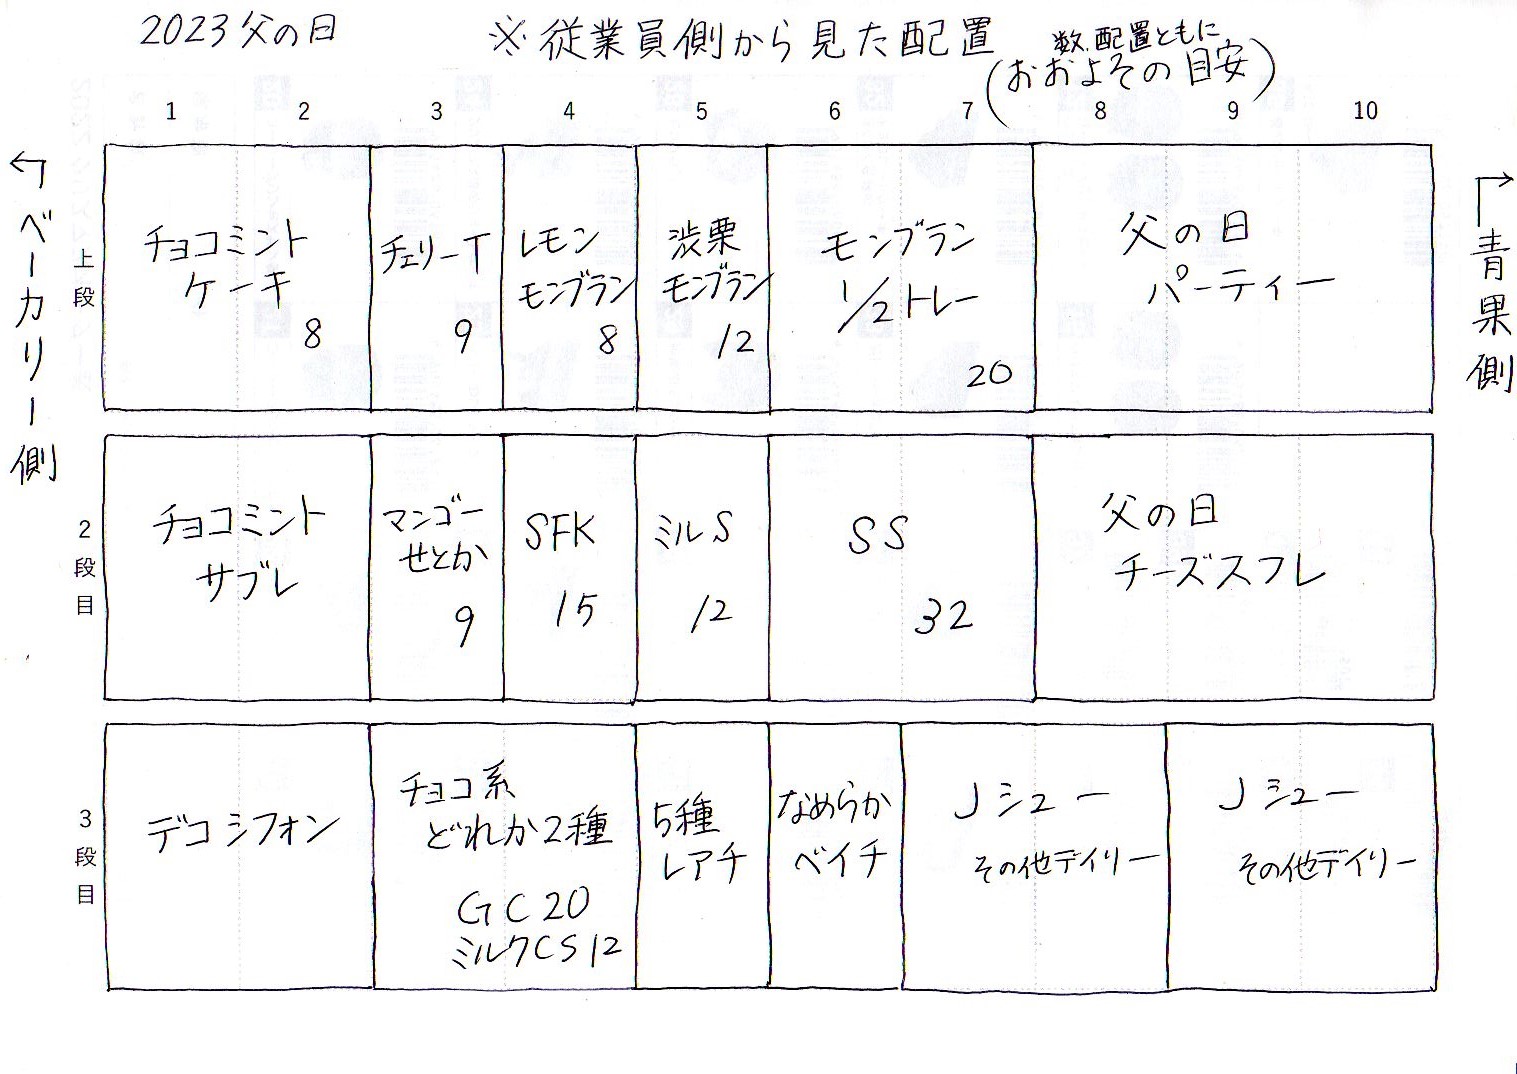 2023父の日
※従業員側から見た配置
数、配置ともに
(おおよその目安)
1 2 3 4 5 6 7 8 9 10
←ベーカリー側
→青果側
上段
チョコミント
ケーキ
8
チェリーT
9
レモン
モンブラン
8
渋栗
モンブラン
12
モンブラン
1/2トレー
20
父の日
パーティー
2段目
チョコミント
サブレ
マンゴー
せとか
9
SFK
15
ミルS
12
SS
32
父の日
チーズスフレ
3段目
デコシフォン
チョコ系
どれか2種
GC20
ミルクCS12
5種
レアチ
なめらか
ベイチ
Jシュー
その他デイリー
Jシュー
その他デイリー